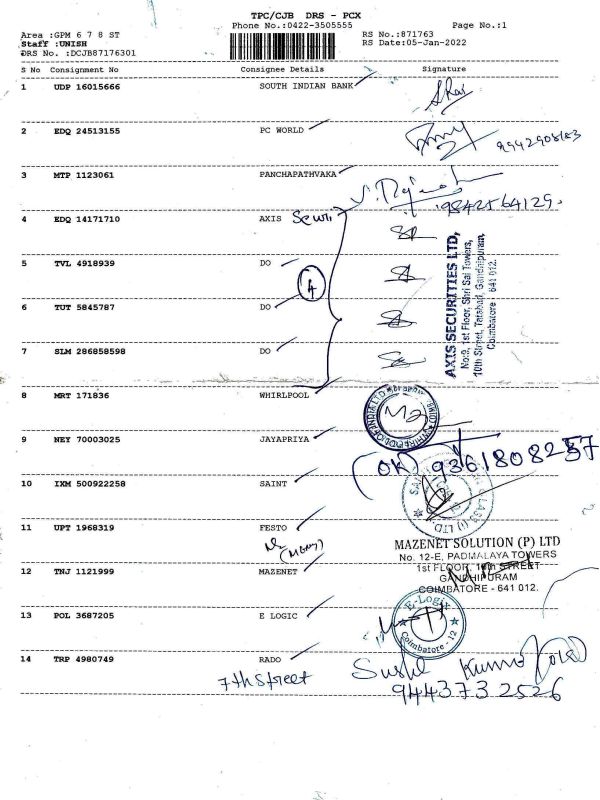 TPC/CJB DRS - PCX
Phone No.:0422-3505555
Page No.:1
Area :GPM 6 7 8 ST
Staff :UNISH
DRS No. :DCJB87176301
RS No.:871763
RS Date:05-Jan-2022
S No Consignment No Consignee Details Signature
1 UDP 16015666 SOUTH INDIAN BANK
2 EDQ 24513155 PC WORLD
3 MTP 1123061 PANCHAPATHVAKA
9842564129
4 EDQ 14171710 AXIS
5 TVL 4918939 DO
4
6 TUT 5845787 DO
7 SLM 286858598 DO
AXIS SECURITIES LTD,
No:9, 1st Floor, Shri Sai Towers,
10th Street, Tatabad, Gandhipuram,
Coimbatore - 641 012.
8 MRT 171836 WHIRLPOOL
9 NEY 70003025 JAYAPRIYA
(OK) 9361808257
10 IXM 500922258 SAINT
11 UPT 1968319 FESTO
MAZENET SOLUTION (P) LTD
No. 12-E, PADMALAYA TOWERS
1st FLOOR, 10th STREET
GANDHIPURAM
COIMBATORE - 641 012.
12 TNJ 1121999 MAZENET
13 POL 3687205 E LOGIC
E-Logix
Coimbatore - 12
14 TRP 4980749 RADO
7th Street
Sushil Kumar
9443732526